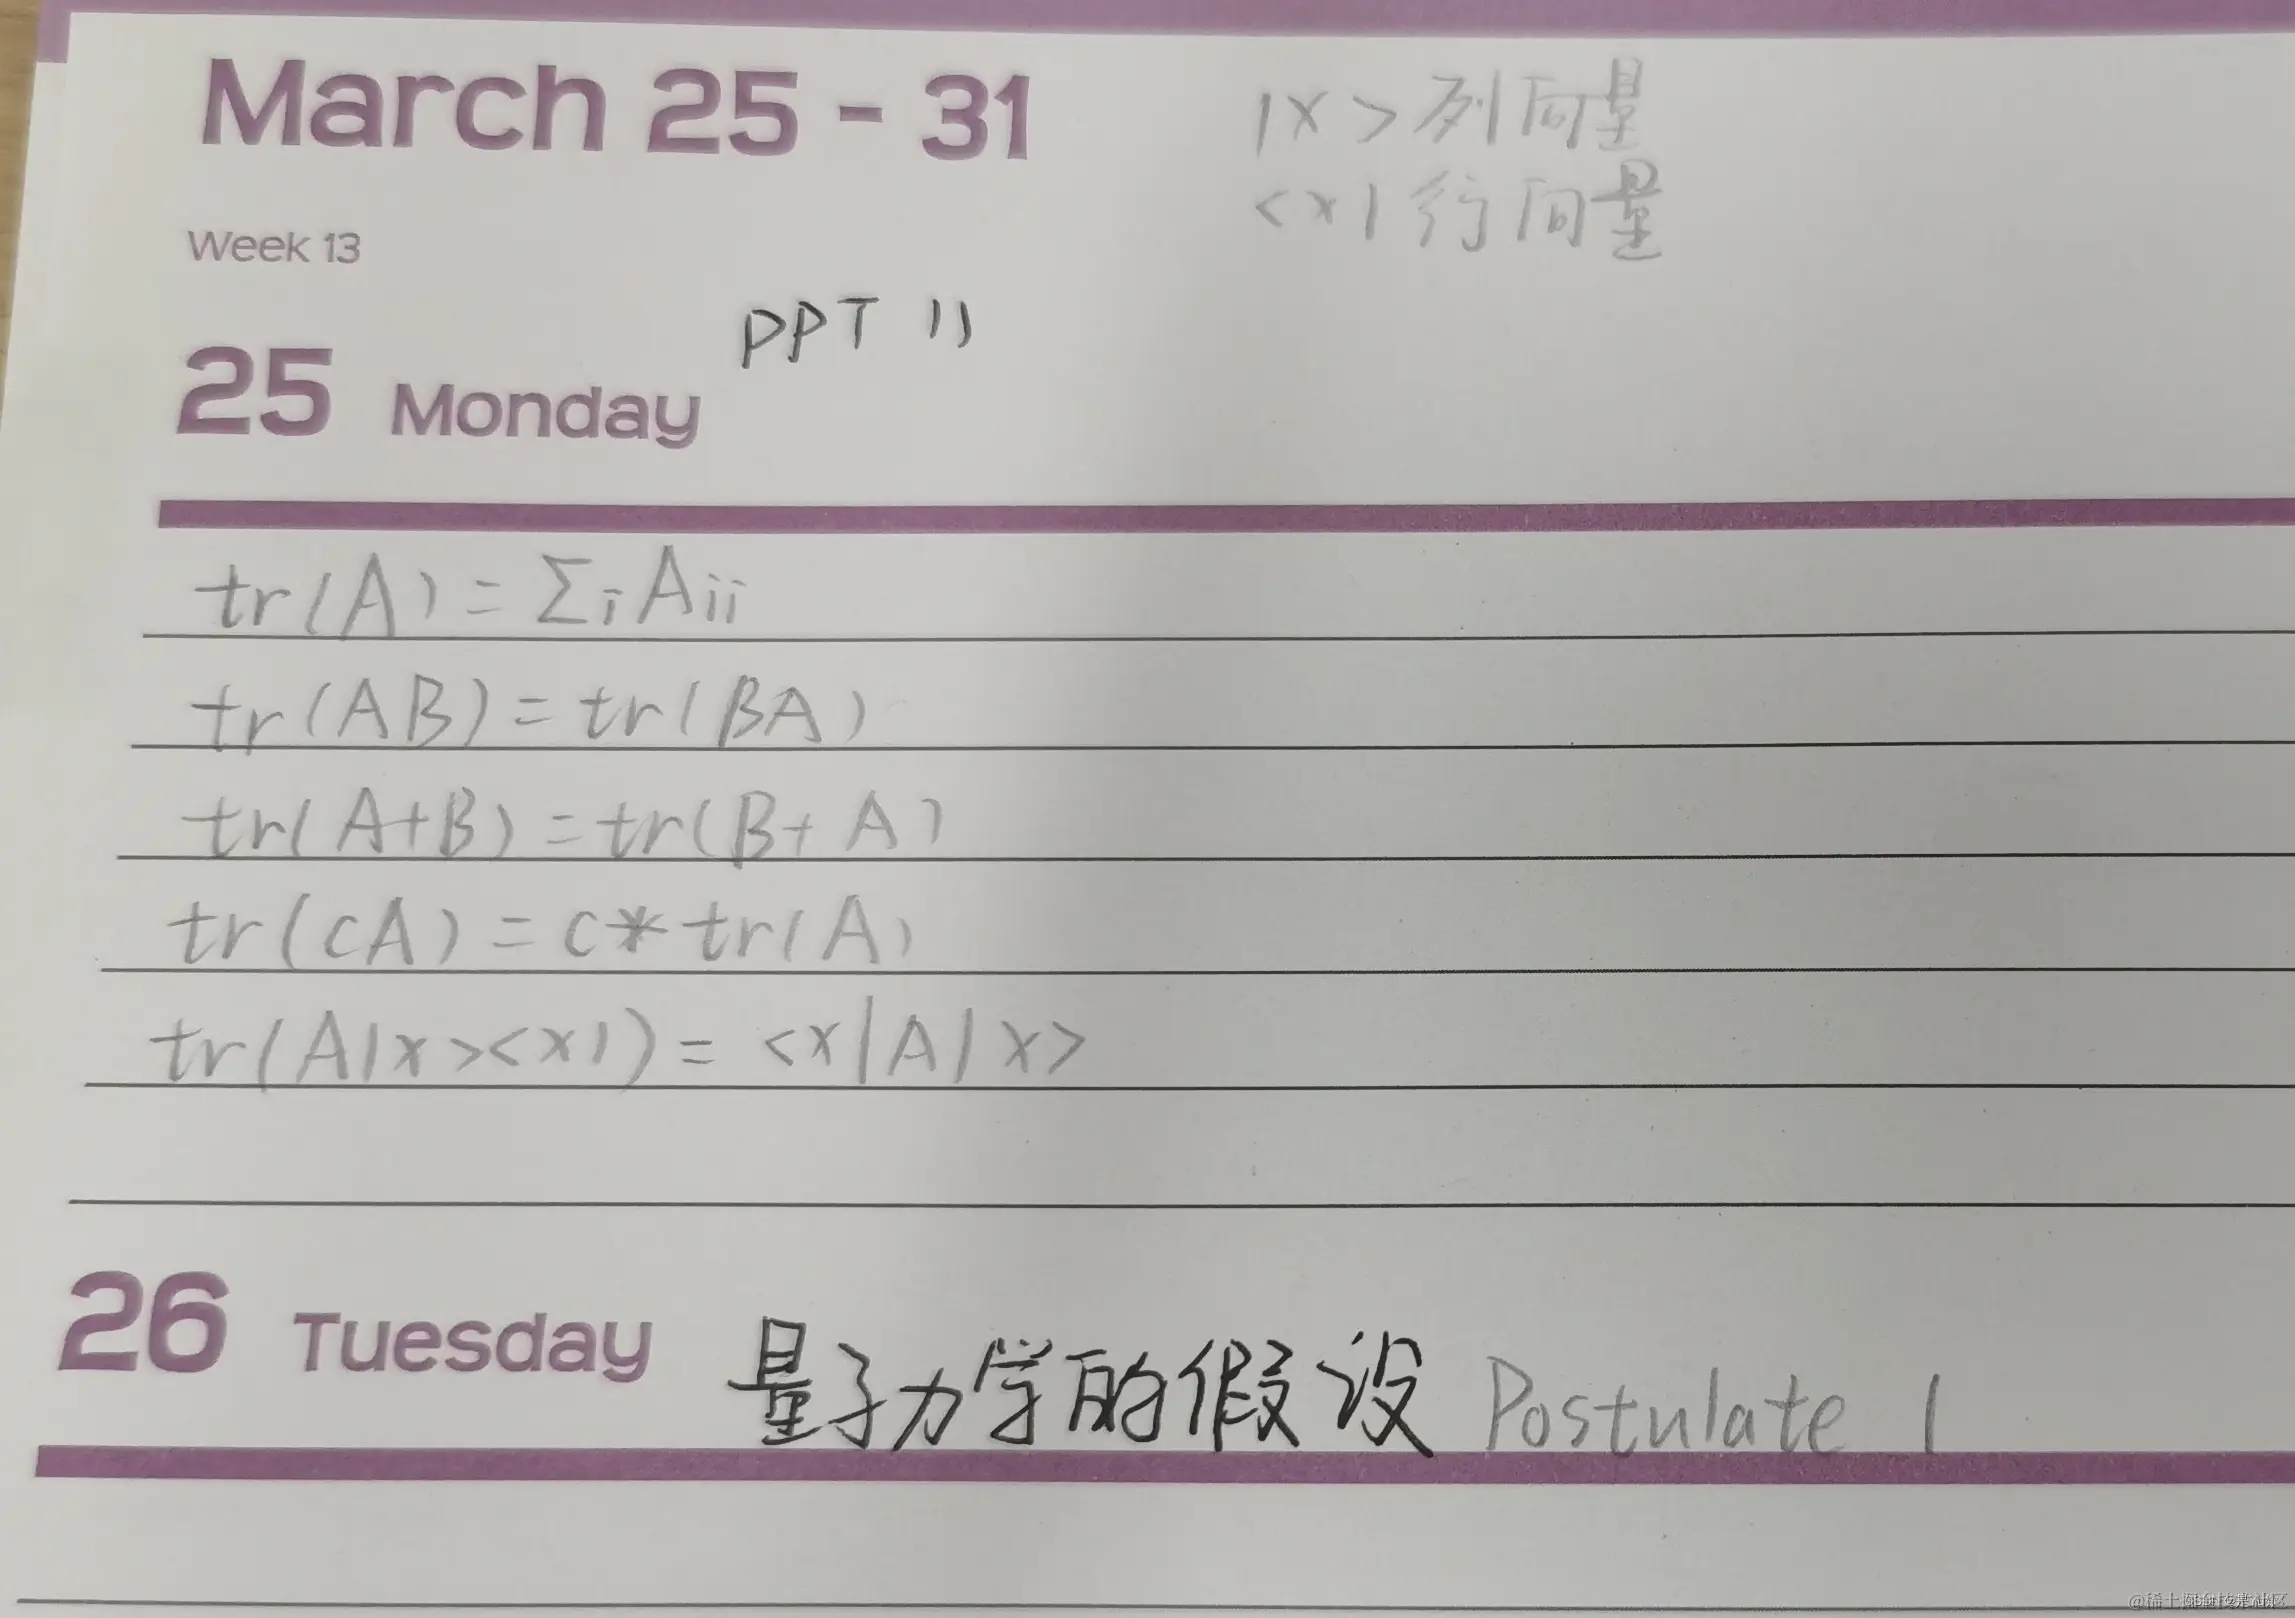 March 25 - 31
|x> 列向量
<x| 行向量
Week 13
PPT 11
25 Monday
tr(A) = Σi Aii
tr(AB) = tr(BA)
tr(A+B) = tr(B+A)
tr(cA) = c*tr(A)
tr(A|x><x|) = <x|A|x>
26 Tuesday 量子力学的假设 Postulate 1
@稀土掘金技术社区